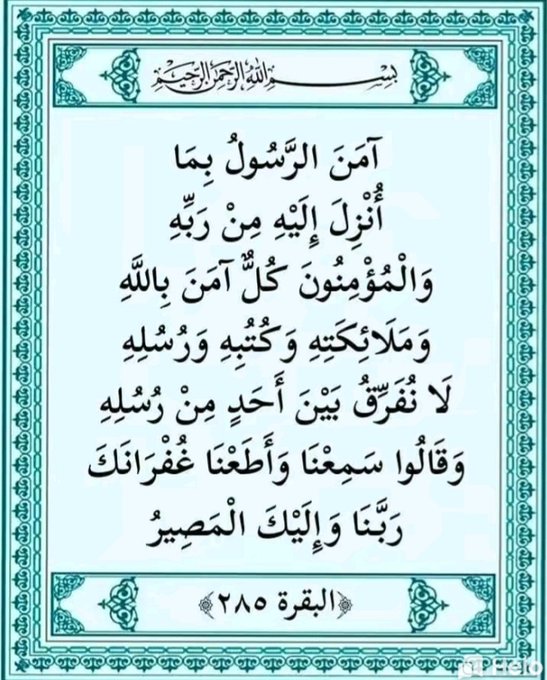 بِسْمِ اللهِ الرَّحْمَنِ الرَّحِيمِ
آمَنَ الرَّسُولُ بِمَا
أُنْزِلَ إِلَيْهِ مِنْ رَبِّهِ
وَالْمُؤْمِنُونَ كُلٌّ آمَنَ بِاللَّهِ
وَمَلَائِكَتِهِ وَكُتُبِهِ وَرُسُلِهِ
لَا نُفَرِّقُ بَيْنَ أَحَدٍ مِنْ رُسُلِهِ
وَقَالُوا سَمِعْنَا وَأَطَعْنَا غُفْرَانَكَ
رَبَّنَا وَإِلَيْكَ الْمَصِيرُ
﴿البقرة ٢٨٥﴾
Helo